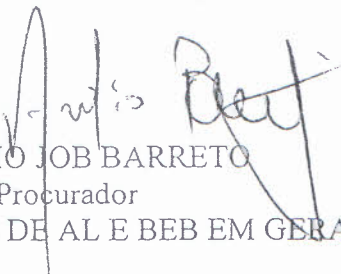 IO JOB BARRETO
Procurador
DE AL E BEB EM GERA